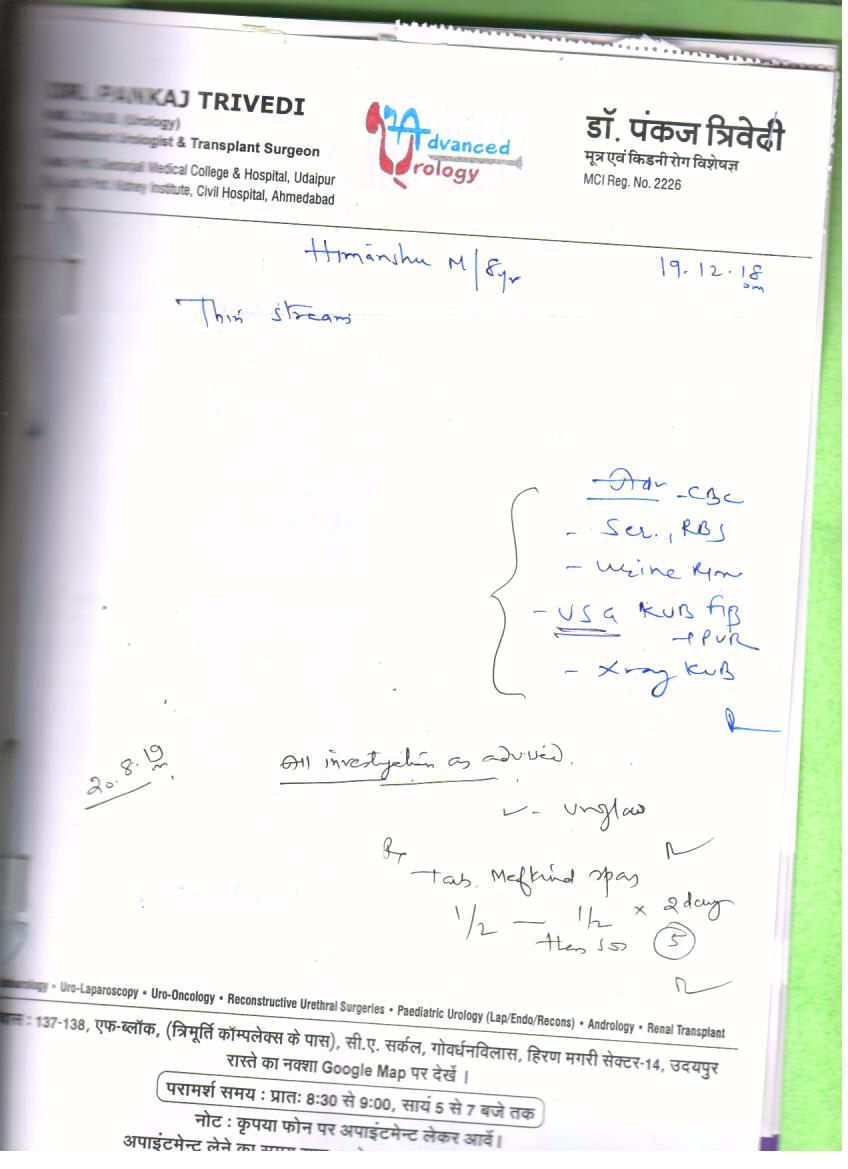 PANKAJ TRIVEDI
(Urology)
Urologist & Transplant Surgeon
Medical College & Hospital, Udaipur
Institute, Civil Hospital, Ahmedabad
Advanced
Urology
डॉ. पंकज त्रिवेदी
मूत्र एवं किडनी रोग विशेषज्ञ
MCI Reg. No. 2226
Himanshu M/8yr
19.12.18
Thin stream
Adv - CBC
- Scr., RBS
- Urine R/m
- USG KUB
+ PVR
- Xray KUB
20.8.19
All investigation as advised.
Rx
Tab. Meftkind spas
1/2 — 1/2 x 2 day
then SOS 5
• Uro-Laparoscopy • Uro-Oncology • Reconstructive Urethral Surgeries • Paediatric Urology (Lap/Endo/Recons) • Andrology • Renal Transplant
: 137-138, एफ-ब्लॉक, (त्रिमूर्ति कॉम्पलेक्स के पास), सी.ए. सर्कल, गोवर्धनविलास, हिरण मगरी सेक्टर-14, उदयपुर
रास्ते का नक्शा Google Map पर देखें ।
परामर्श समय : प्रातः 8:30 से 9:00, सायं 5 से 7 बजे तक
नोट : कृपया फोन पर अपाइंटमेन्ट लेकर आवें।
अपाइंटमेन्ट लेने का समय